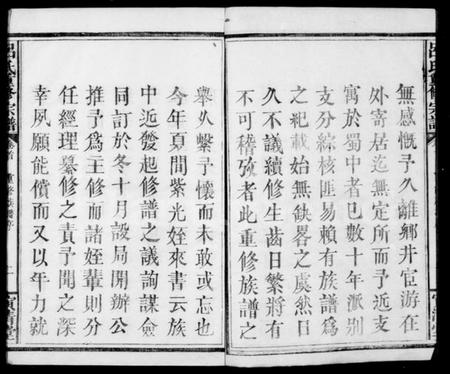 無感慨予久離鄉井宦游在
外寄居迄無定所而予近支
寓於蜀中者已數十年派別
支分綜核匪易賴有族譜爲
之紀載始無缺畧之虞然日
久不議續修生齒日繁將有
不可稽攷者此重修族譜之
舉久繫予懷而未敢或忘也
今年夏間紫光姪來書云族
中近發起修譜之議詢謀僉
同訂於冬十月設局開辦公
推予爲主修而諸姪輩則分
任經理纂修之責予聞之深
幸夙願能償而又以年力就